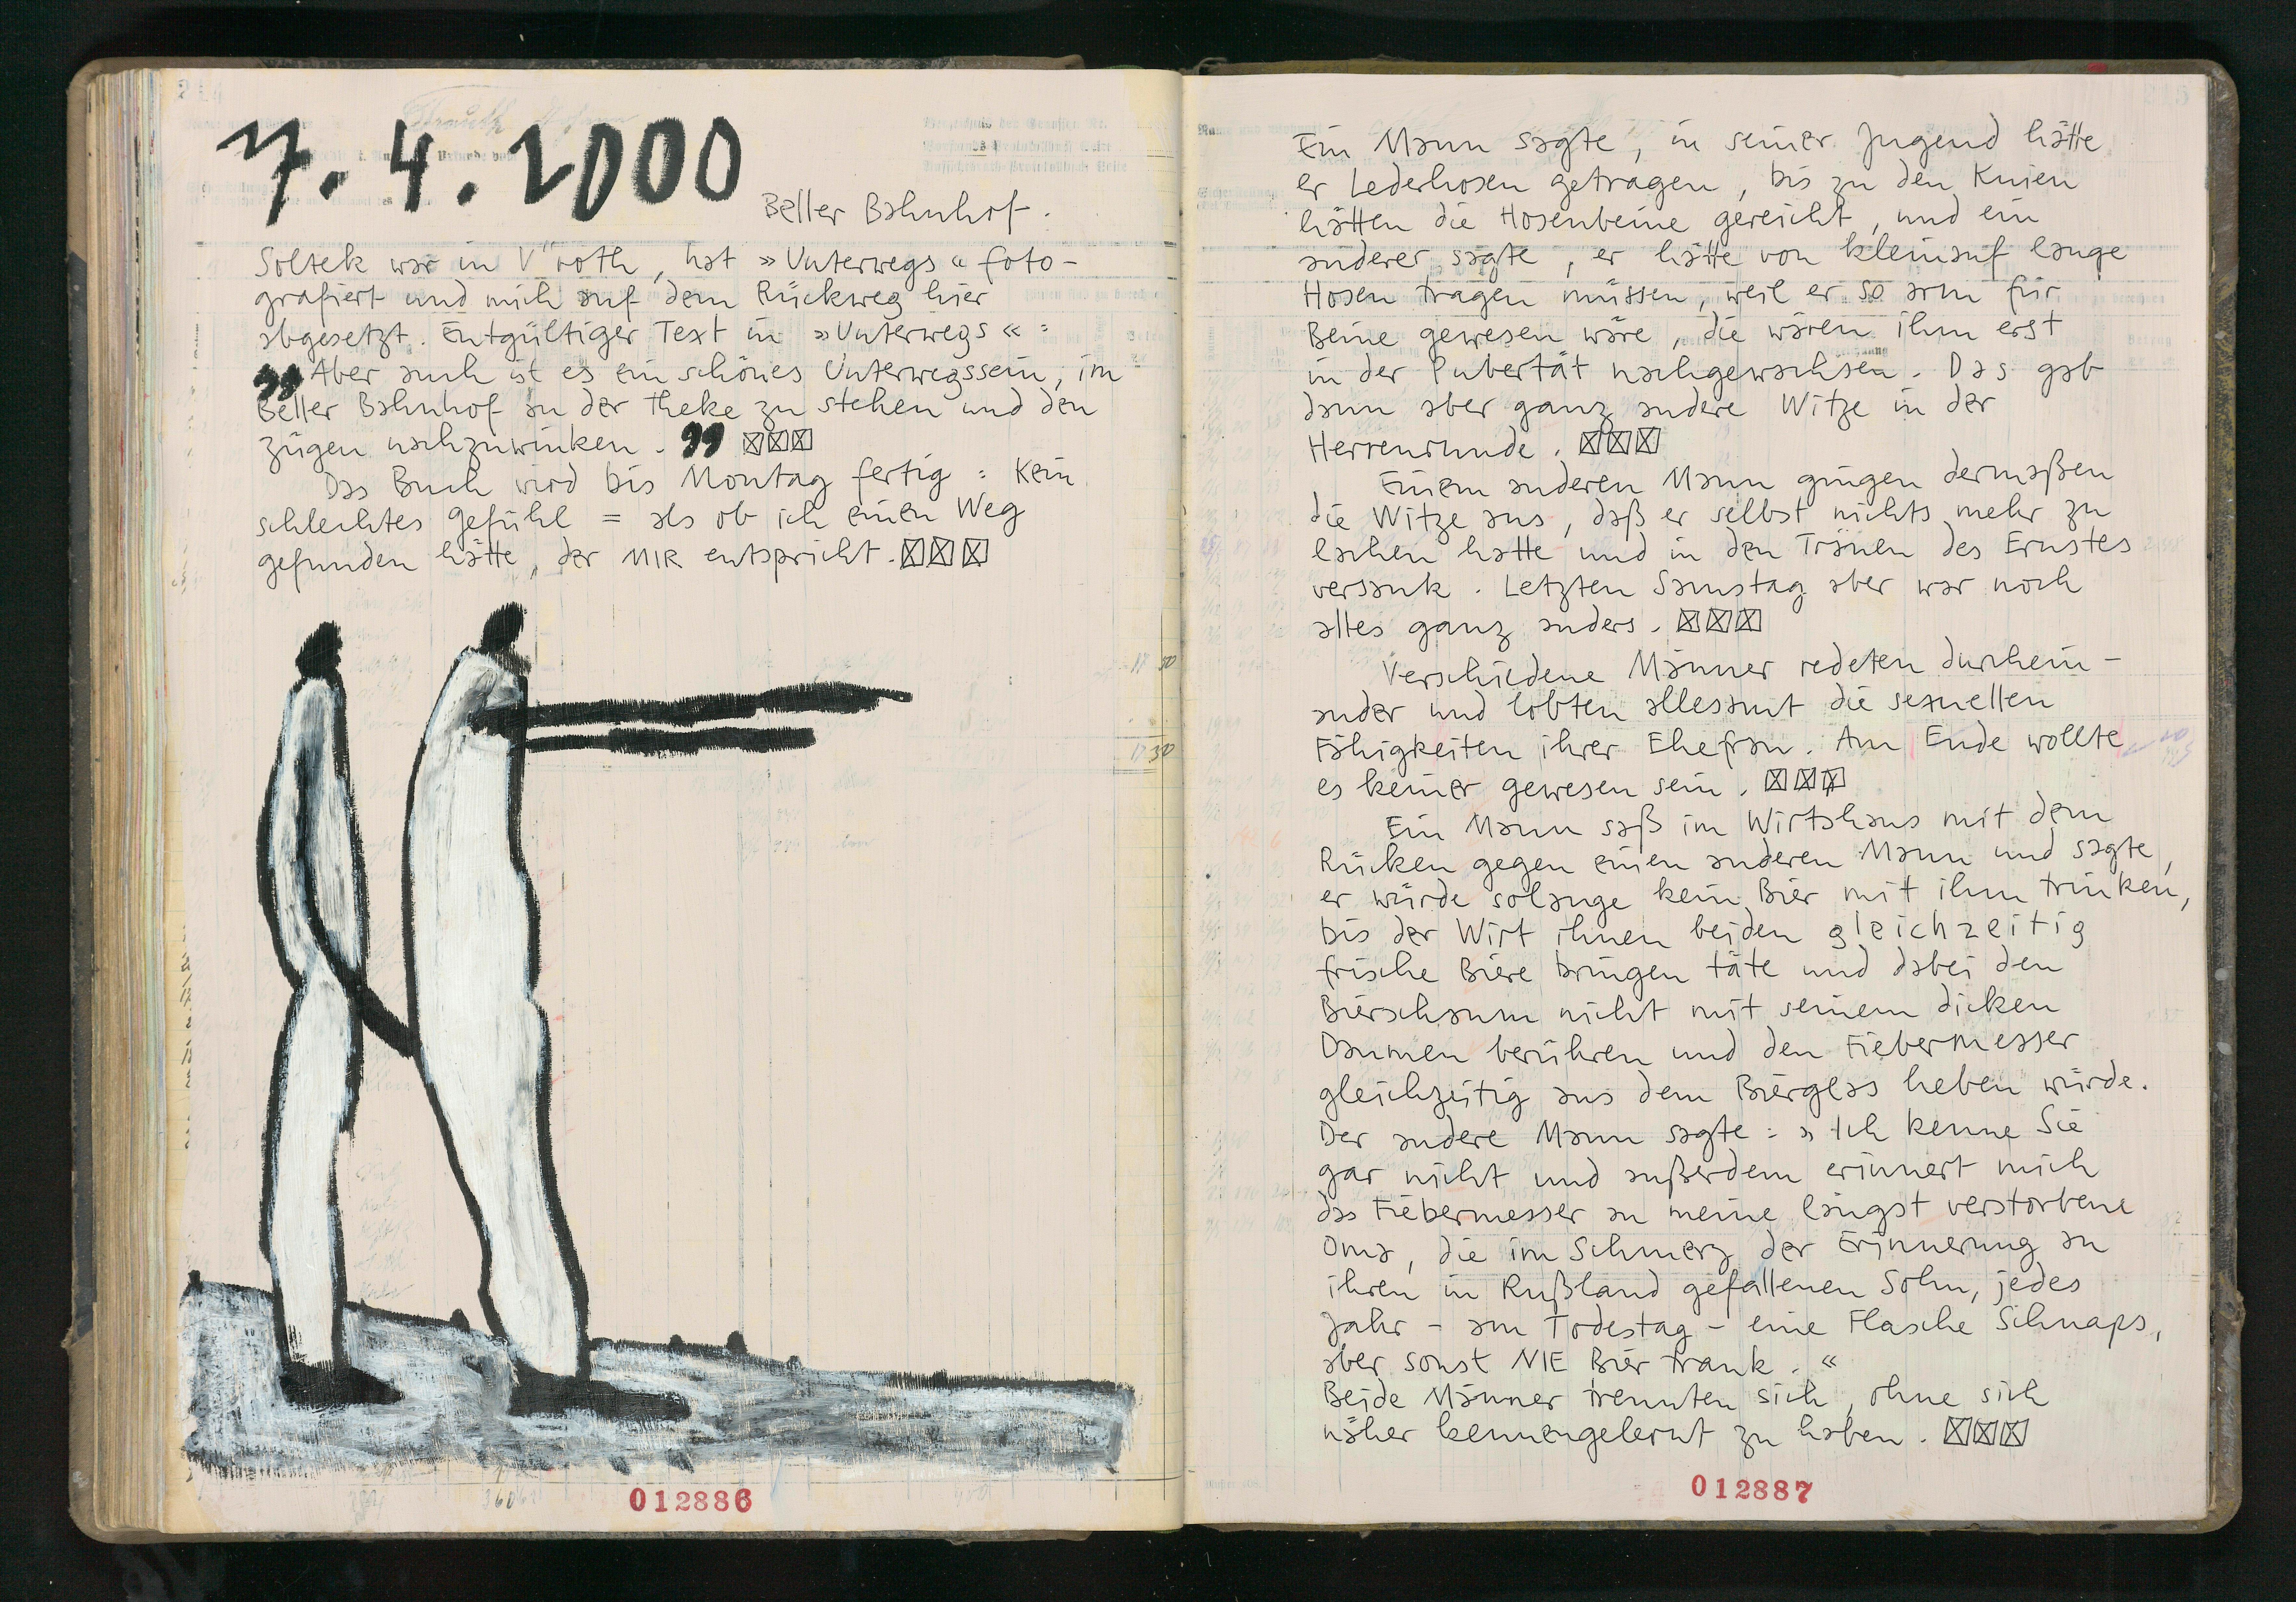 7.4.2000
Beller Bahnhof.
Soltek war in V"roth, hat »Unterwegs« foto-
grafiert und mich auf dem Rückweg hier
abgesetzt. Entgültiger Text in »Unterwegs«:
"Aber auch ist es ein schönes Unterwegssein, im
Beller Bahnhof an der Theke zu stehen und den
Zügen nachzuwinken." ☒☒☒
Das Buch wird bis Montag fertig: Kein
schlechtes Gefühl = als ob ich einen Weg
gefunden hätte, der MIR entspricht. ☒☒☒
012886
Ein Mann sagte, in seiner Jugend hätte
er Lederhosen getragen, bis zu den Knien
hätten die Hosenbeine gereicht, und ein
anderer sagte, er hätte von kleinauf lange
Hosen tragen müssen, weil er so arm für
Beine gewesen wäre, die wären ihm erst
in der Pubertät nachgewachsen. Das gab
dann aber ganz andere Witze in der
Herrenrunde. ☒☒☒
Einem anderen Mann gingen dermaßen
die Witze aus, daß er selbst nichts mehr zu
lachen hatte und in den Tränen des Ernstes
versank. Letzten Samstag aber war noch
alles ganz anders. ☒☒☒
Verschiedene Männer redeten durchein-
ander und lobten allesamt die sexuellen
Fähigkeiten ihrer Ehefrau. Am Ende wollte
es keiner gewesen sein. ☒☒☒
Ein Mann saß im Wirtshaus mit dem
Rücken gegen einen anderen Mann und sagte,
er würde solange kein Bier mit ihm trinken,
bis der Wirt ihnen beiden gleichzeitig
frische Biere bringen täte und dabei den
Bierschaum nicht mit seinem dicken
Daumen berühren und den Fiebermesser
gleichzeitig aus dem Bierglas heben würde.
Der andere Mann sagte: »Ich kenne Sie
gar nicht und außerdem erinnert mich
das Fiebermesser an meine längst verstorbene
Oma, die im Schmerz der Erinnerung an
ihren in Rußland gefallenen Sohn, jedes
Jahr - am Todestag - eine Flasche Schnaps,
aber sonst NIE Bier trank.«
Beide Männer trennten sich, ohne sich
näher kennengelernt zu haben. ☒☒☒
012887